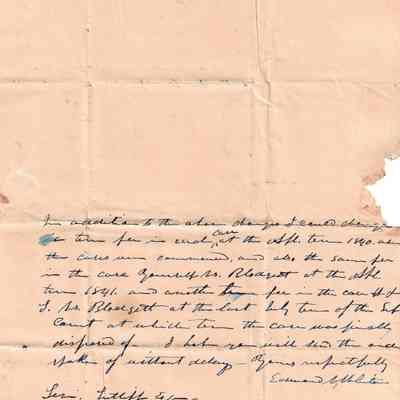 In addition to the above charges I could charge
a term fee in each case at the Apl. term 1840. when
the cases were commenced, and also the same fee
in the case Yourself vs. Blodgett at the Apl
term 1841. and another fee in the case of
J. vs. Blodgett at the last July term of the
Court at which term the case was finally
disposed of I hope you will send the
spoken of without delay Yours respectfully
Edward
Levi Sutliff Esq